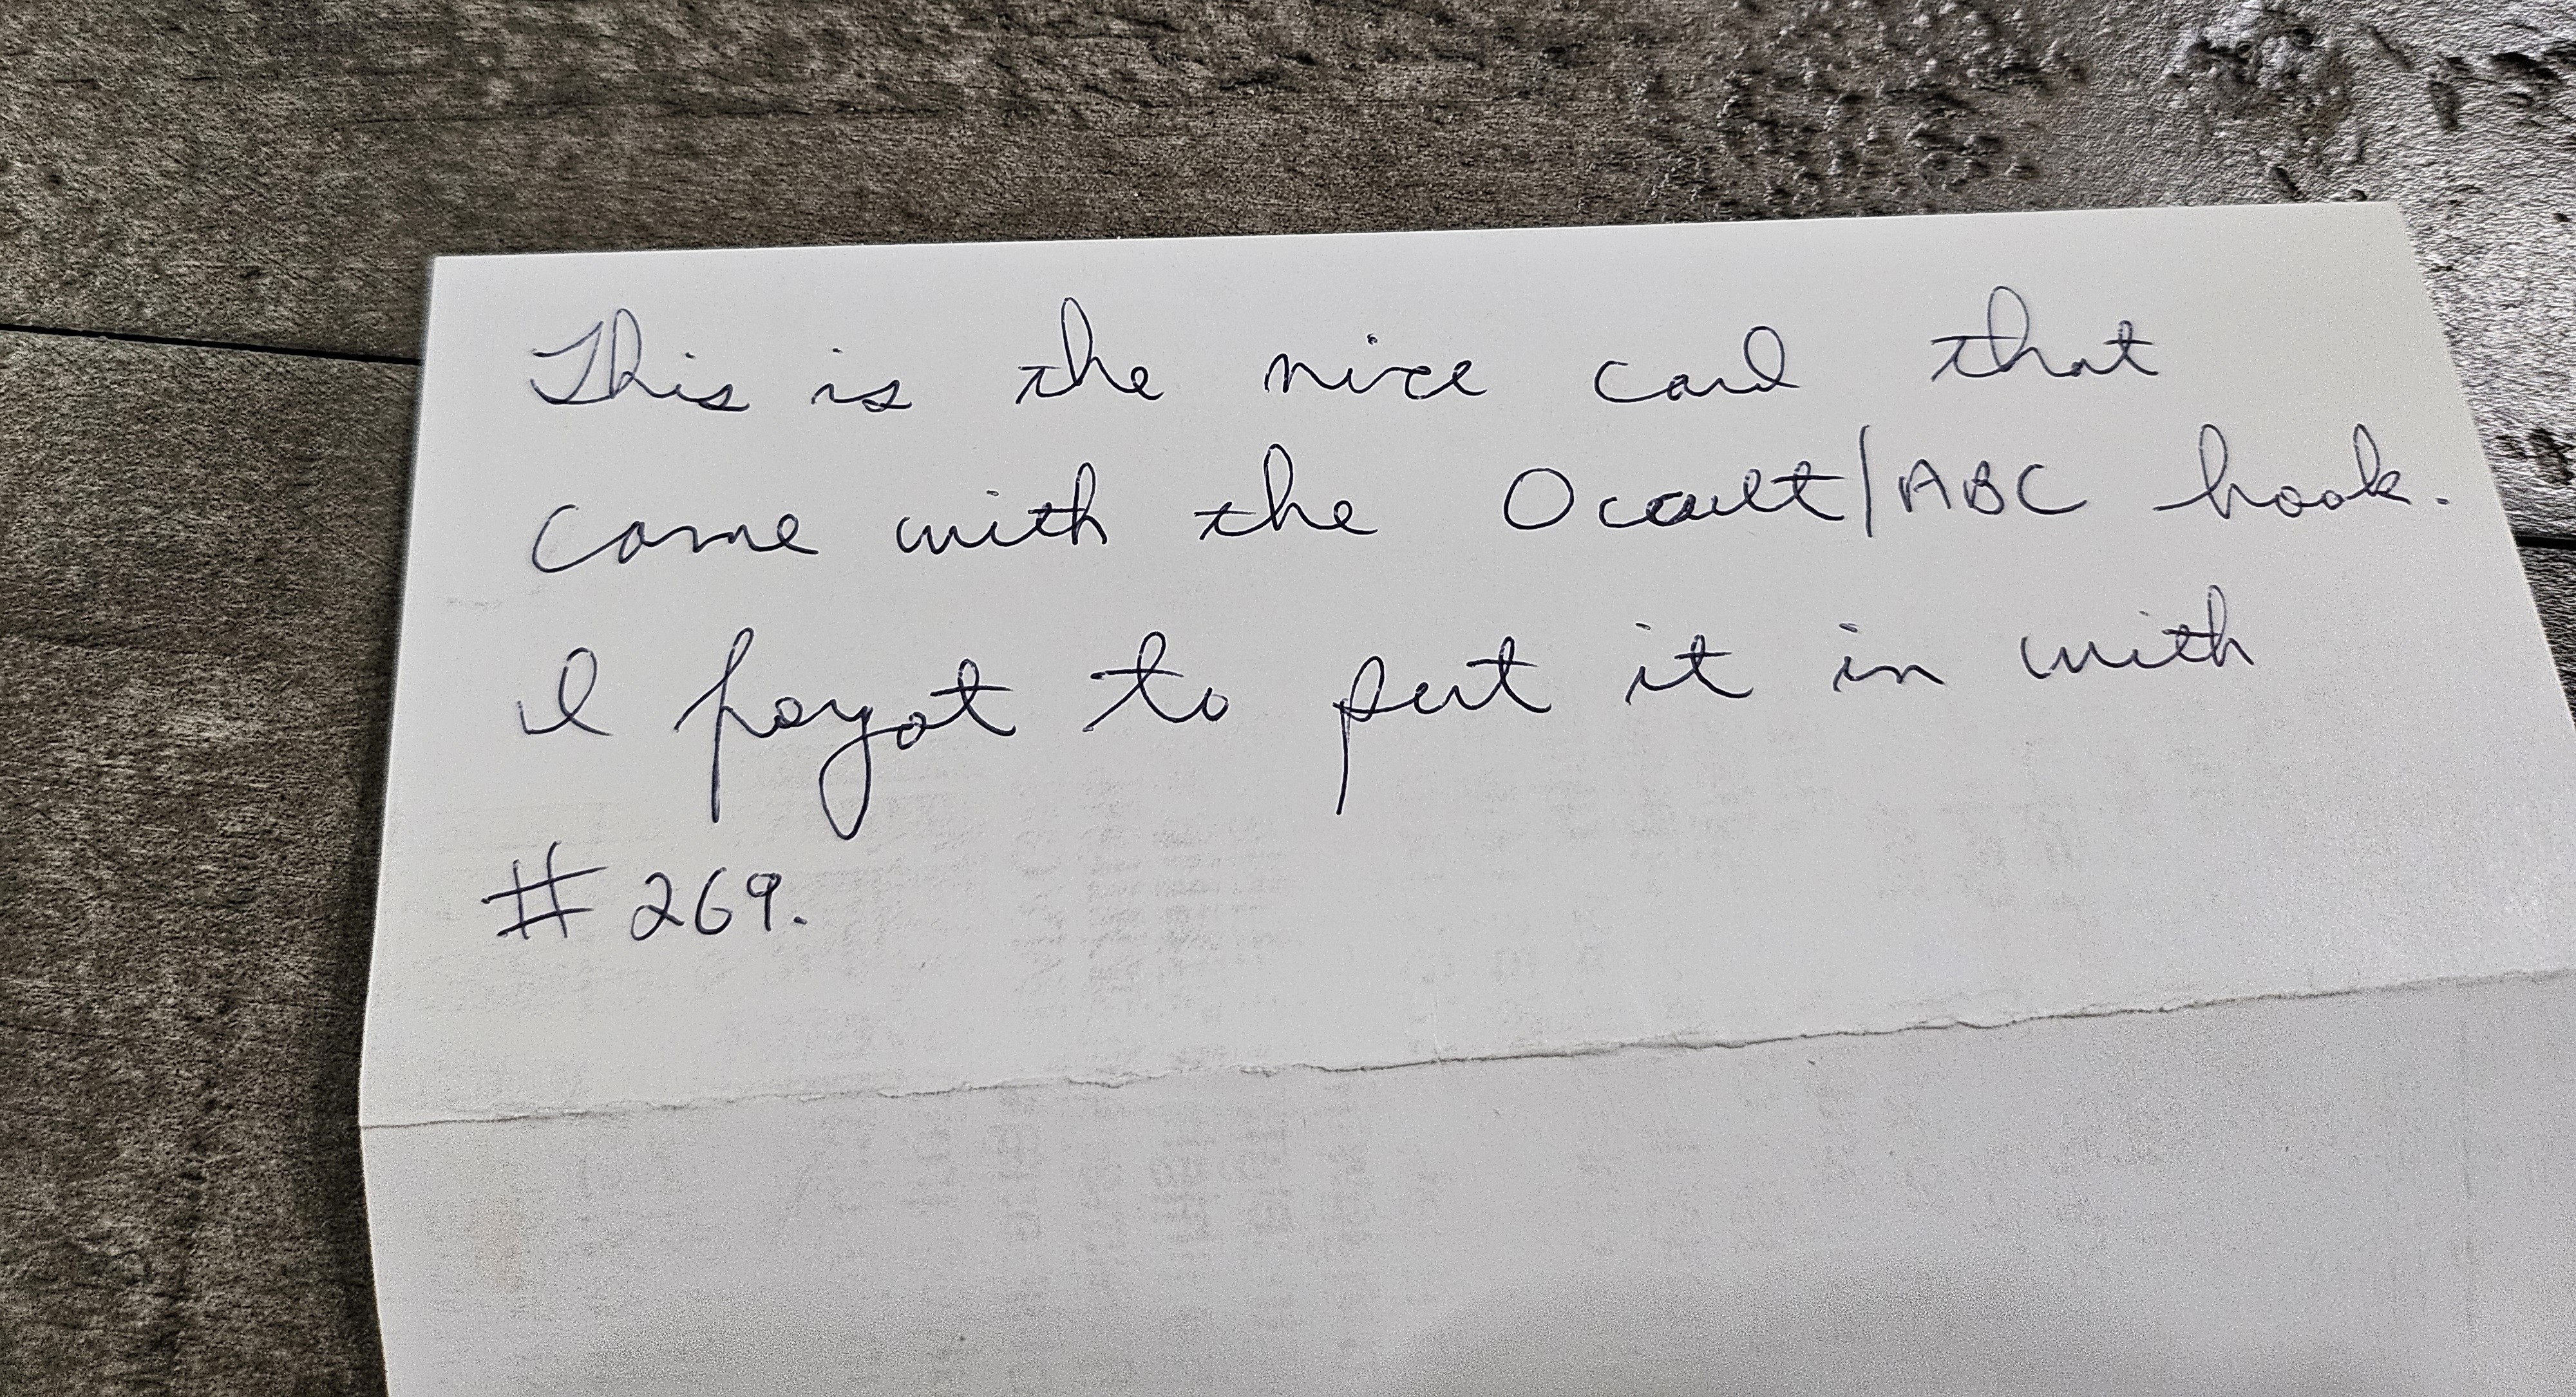 This is the nice card that
came with the Occult/ABC book.
I forgot to put it in with
# 269.